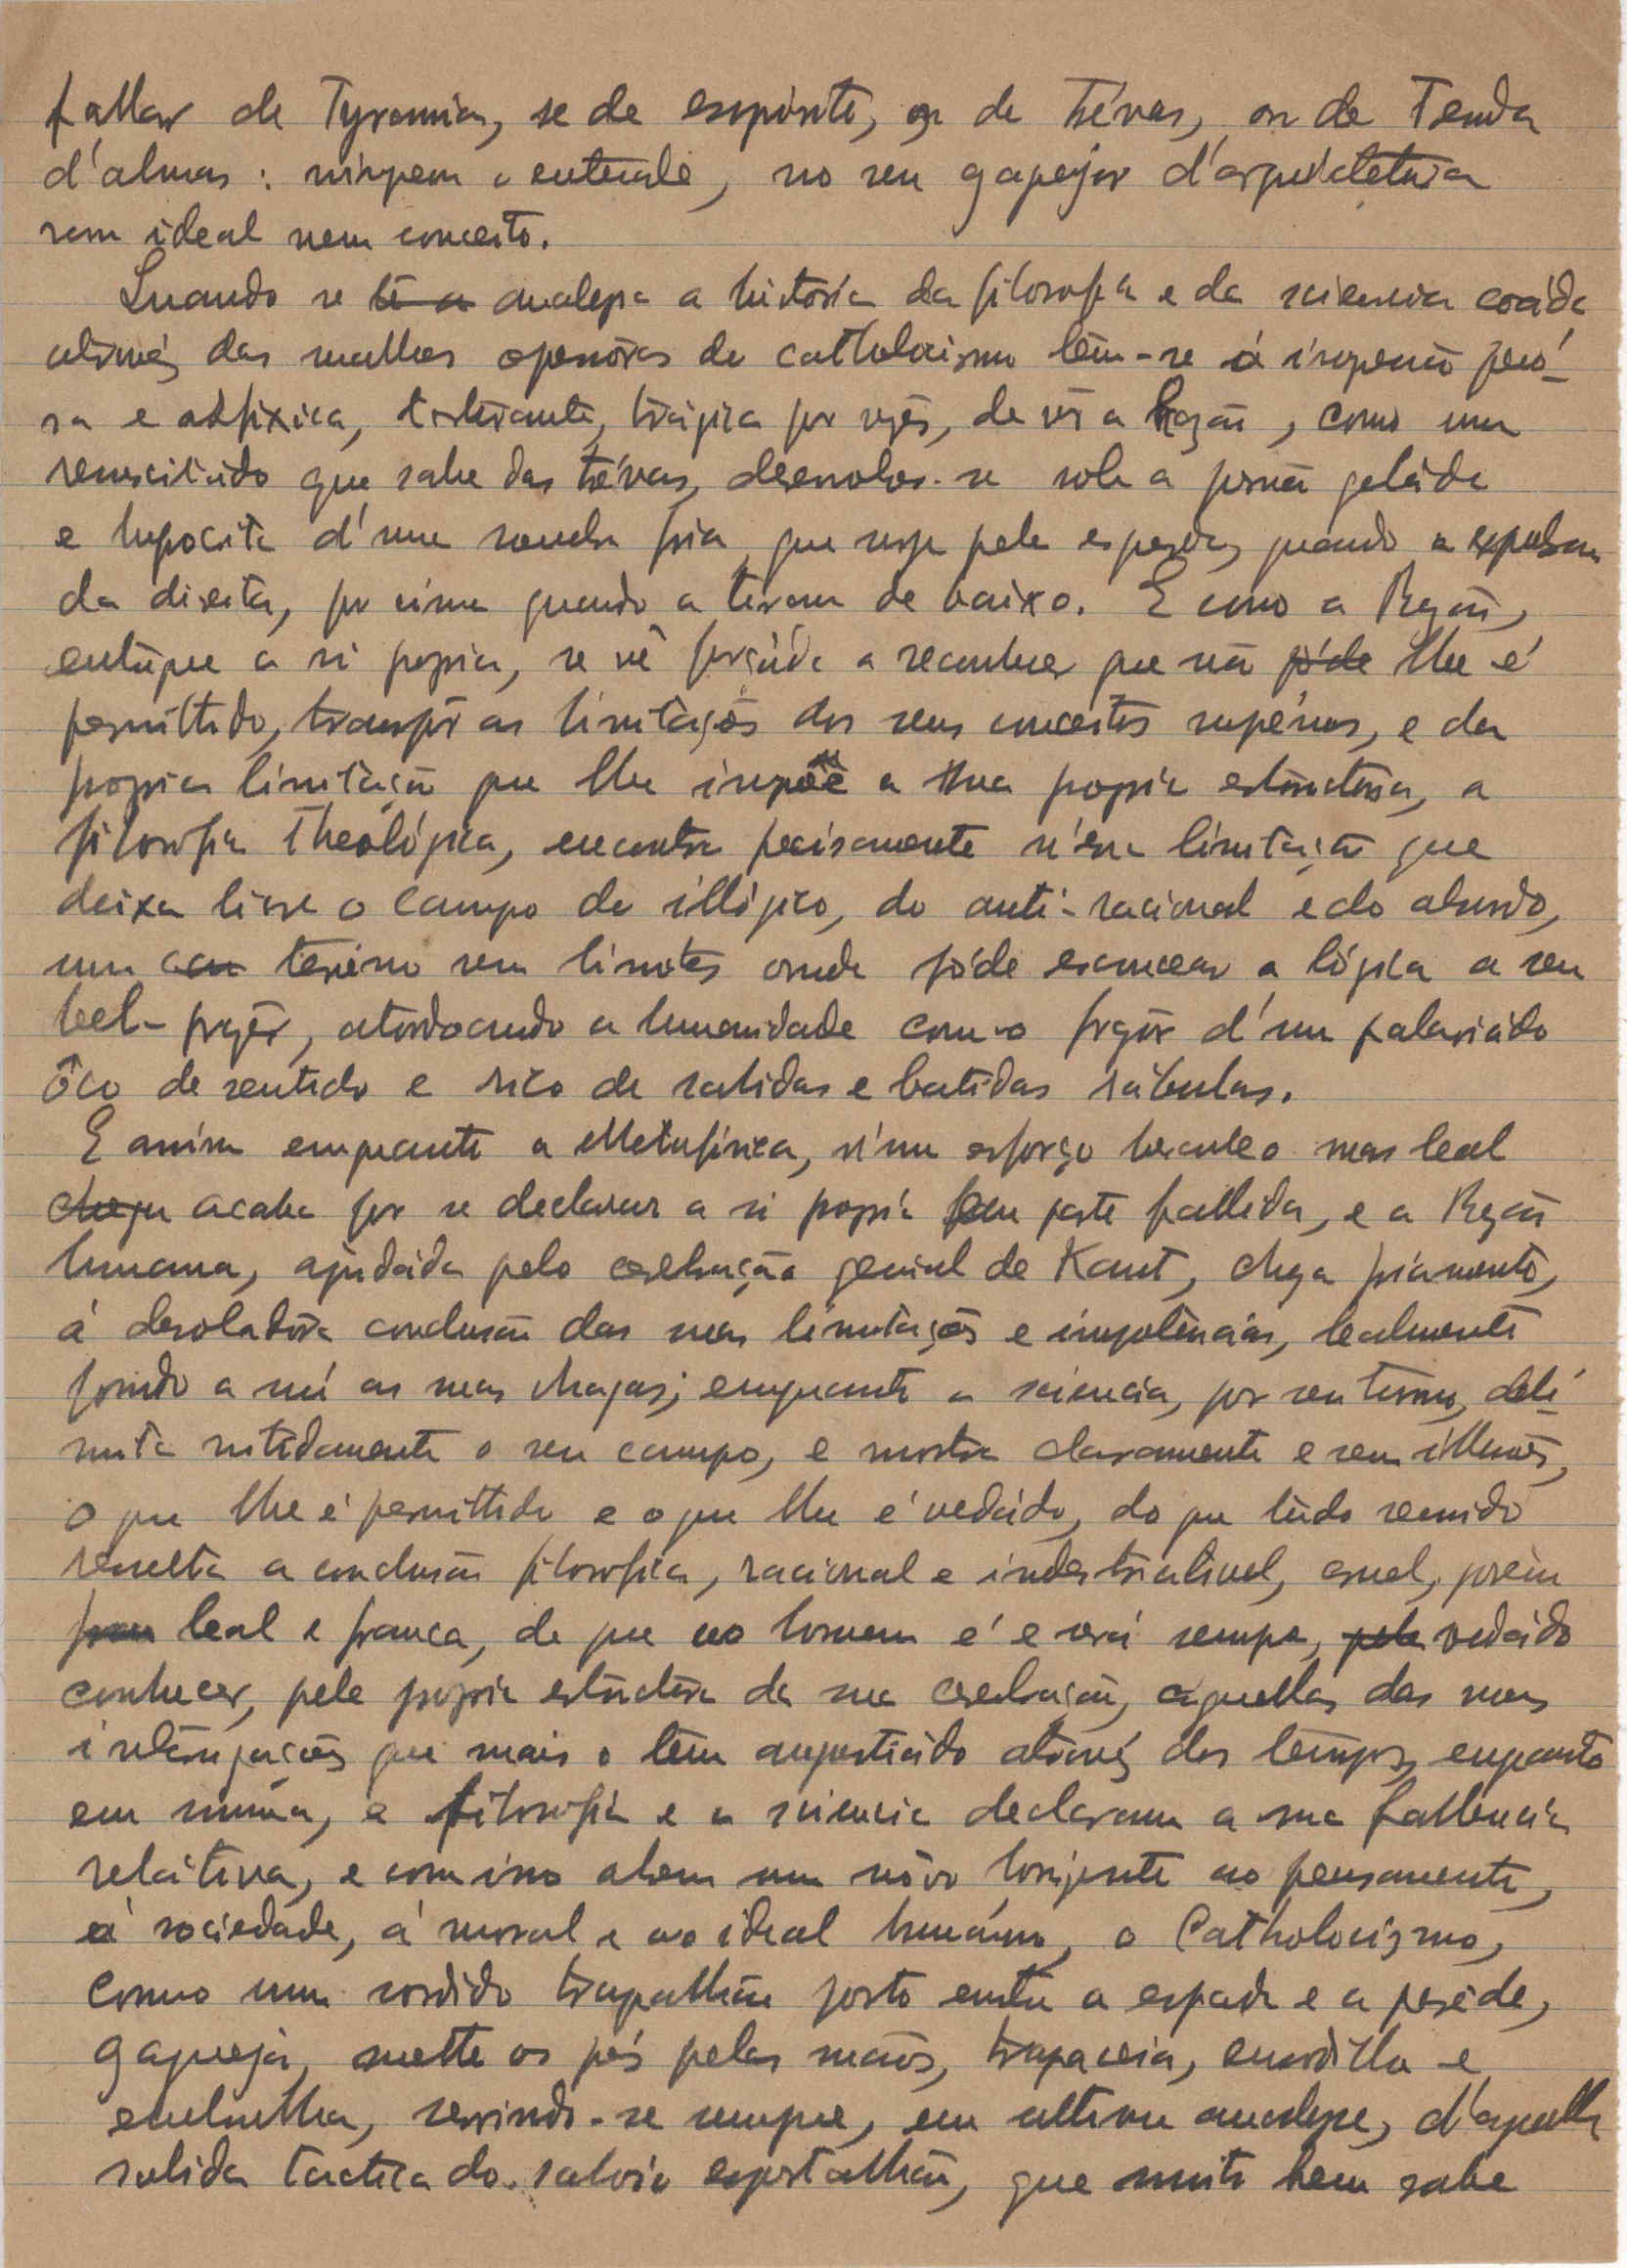 fallar de Tyrannia, se de espirito, ou de trévas, ou de Tenda
d'almas: ninguem o entende, no seu gaguejar d'arquitetura
sem ideal nem conceito.
Quando se lê a analysa a historia da filosofia e da sciencia coáda
através das malhas opressoras do catholocismo têm-se á impressão pesó-
sa e asfixica, torturante, trágica por vezes, de vêr a Razão, como um
resuscitádo que sahe das trévas, desenvolver-se sob a pressão geláda
e hypocrita d'uma sombra fria, que surge pela esquerda, quando a expulsam
da direita, por cima quando a tiram de baixo. E como a Razão,
entregue a si propria, se vê forçáda a reconhecer que não póde lhe é
permittido, transpôr as limitações dos seus conceitos supérios, e da
propria limitação que lhe impõe a sua propria estructura, a
filosofia Theológica, encontra precisamente n'essa limitação que
deixa livre o campo do illógico, do anti-racional e do absurdo,
um cam terreno sem limites onde póde escoucear a lógica a seu
bel-prazêr, atordoando a humanidade com o fragôr d'um palavriádo
ôco de sentido e rico de sahidas e batidas rábulas.
E assim emquanto a Metafisica, n'um esforço herculeo mas leal
chega acaba por se declarar a si propria em parte fallida, e a Razão
humana, ajudáda pelo cerebração genial de Kant, chega friamente,
á desoladôra conclusão das suas limitações e impotências, lealmente
pondo a nú as suas chagas; emquanto a sciencia, por seu turno, deli-
mita nitidamente o seu campo, e mostra claramente e sem illusões,
o que lhe é permittido e o que lhe é vedádo, do que túdo reunido
resulta a conclusão filosofica, racional e indestructivel, cruel, porém
fran leal e franca, de que ao homem é e será sempre, pela vedádo
conhecer, pela propria estructura da sua cerebração, aquellas das suas
interrogações que mais o têm angustiádo através dos tempos, emquanto
em summa, a filosofia e a sciencia declaram a sua fallencia
relátiva, e com isso abrem um nôvo horizonte ao pensamento,
á sociedade, á moral e ao ideal humáno, o Catholocismo,
como um sordido trapalhão posto entre a espada e a paréde,
gagueja, mette os pés pelas mãos, trapaceia, enrodilha e
embrulha, servindo-se sempre, em ultima analyse, d'aquella
sabida tactica do saloio espertalhão, que muito bem sabe